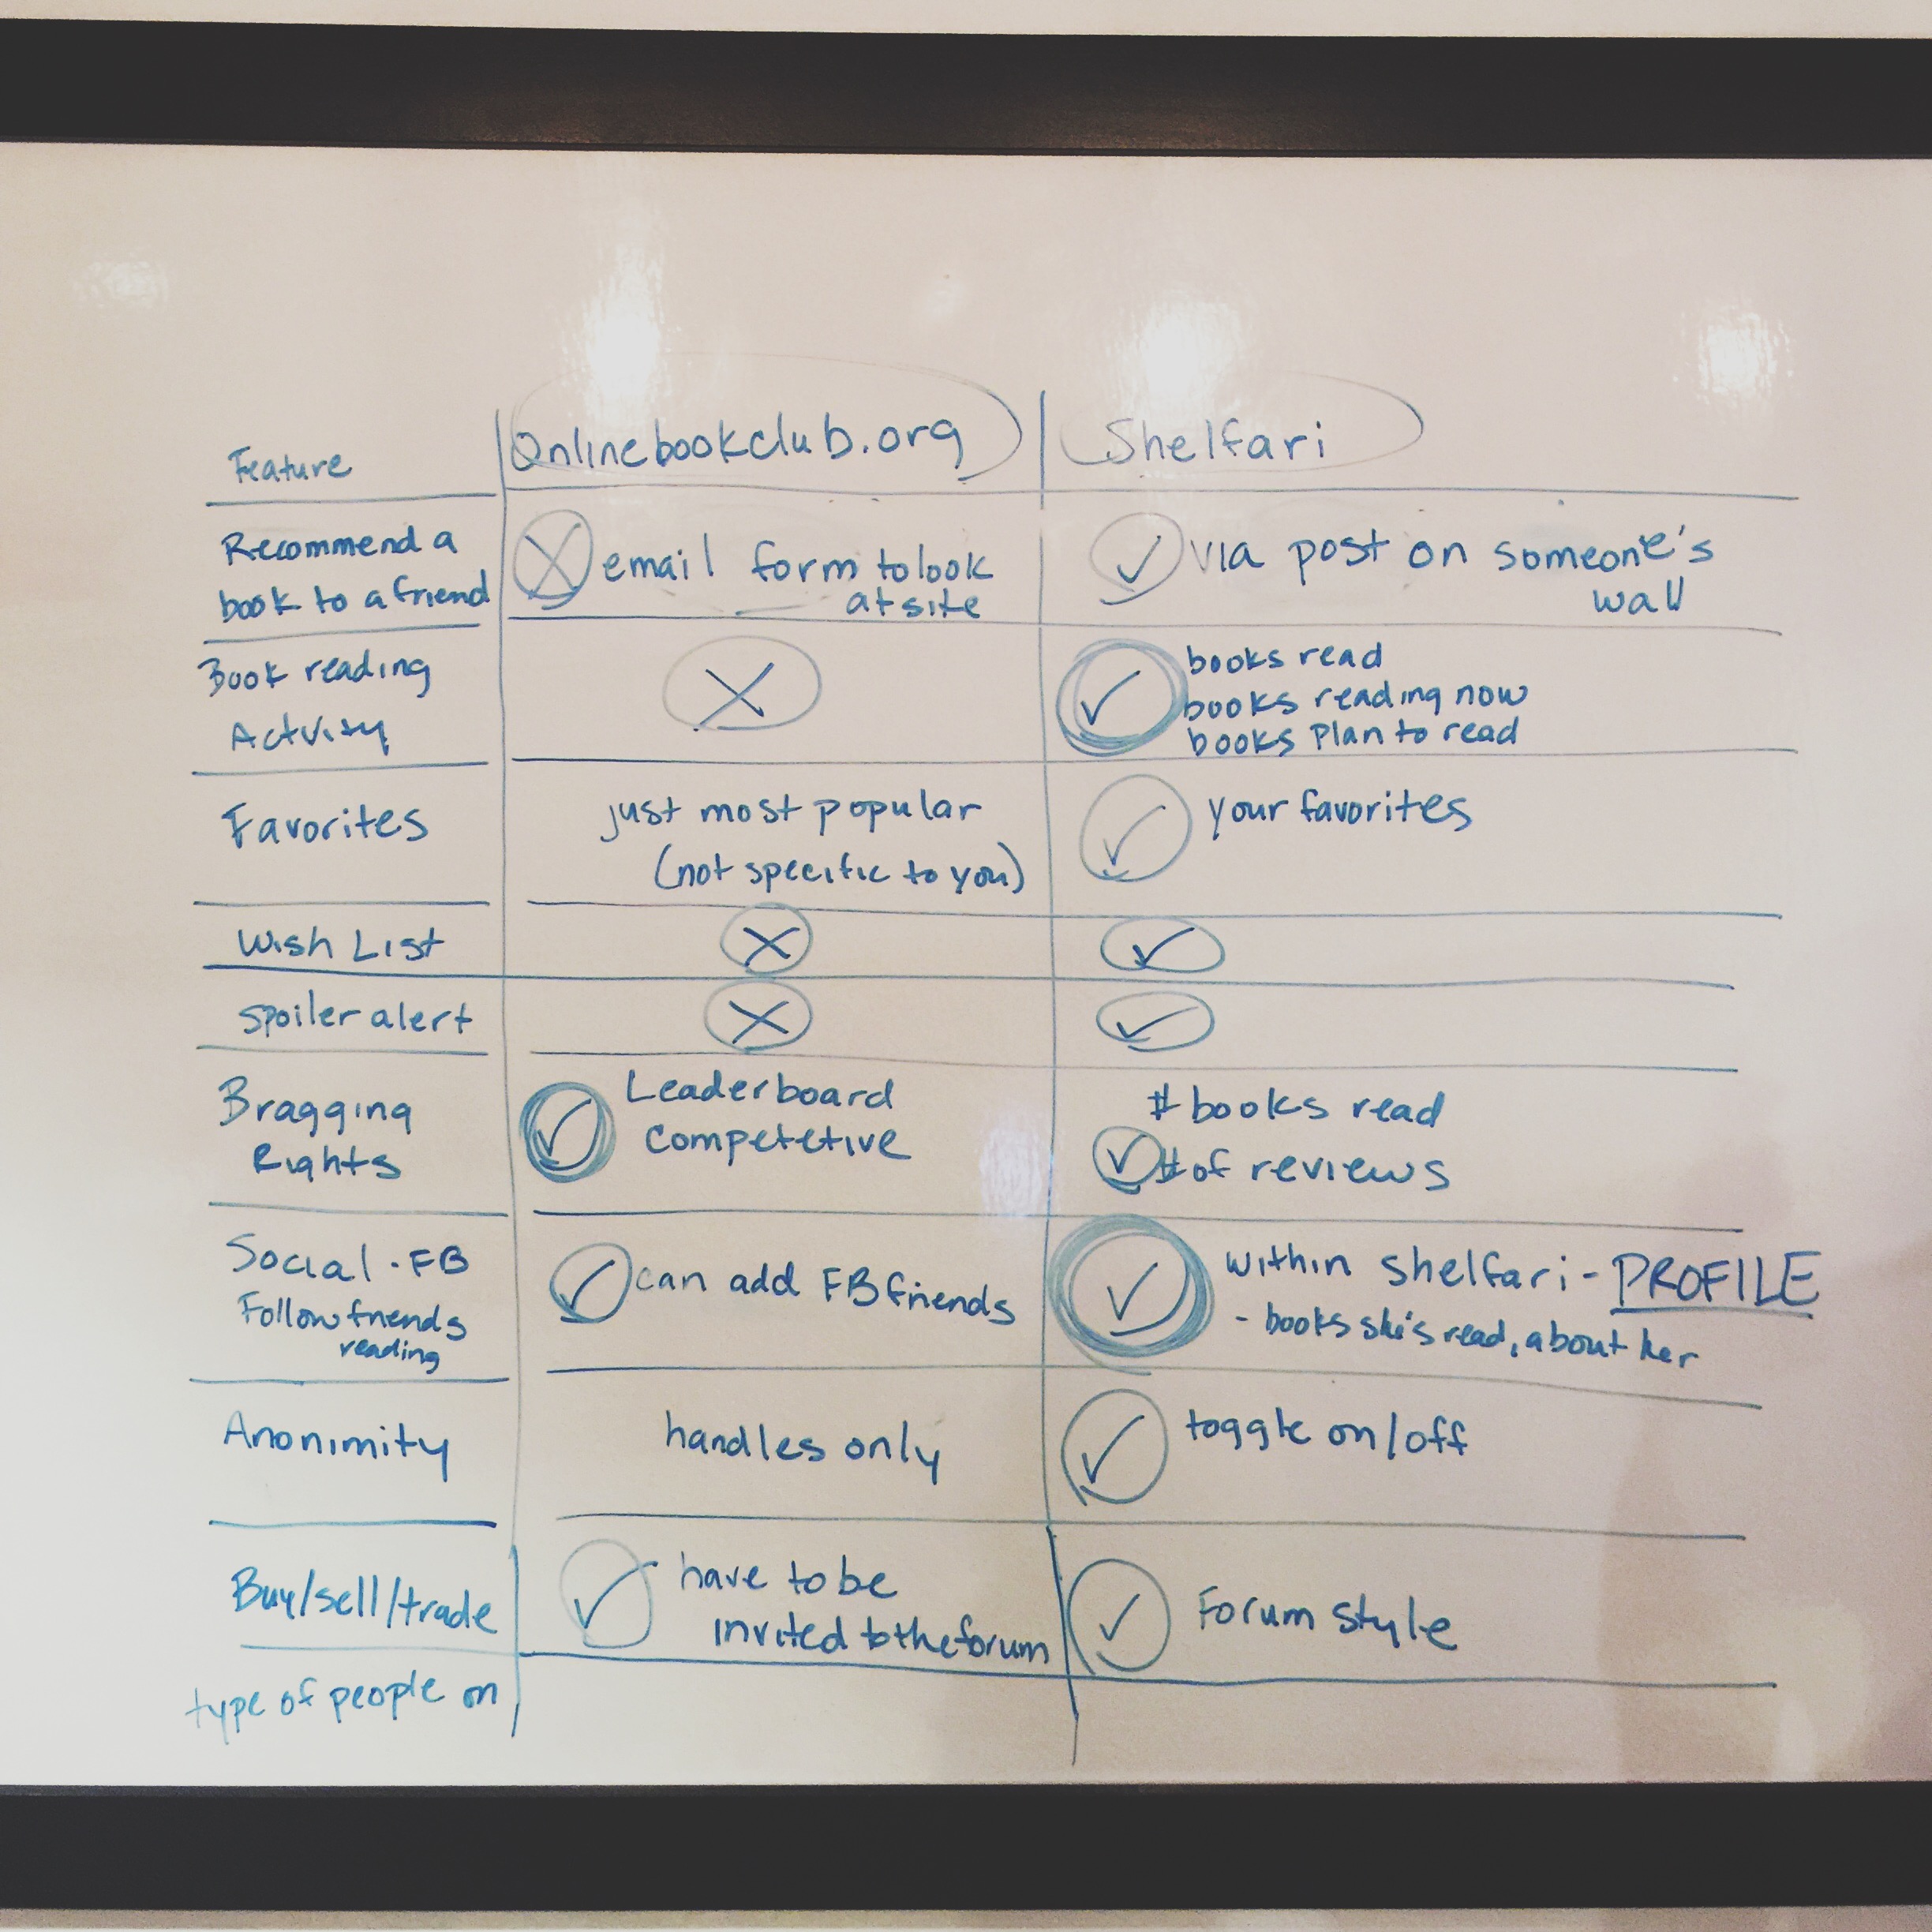 Feature
Onlinebookclub.org
Shelfari
Recommend a
book to a friend
email form to look
at site
via post on someone's
wall
Book reading
Activity
books read
books reading now
books Plan to read
Favorites
just most popular
(not specific to you)
your favorites
Wish List
Spoiler alert
Bragging
Rights
Leaderboard
competetive
# books read
# of reviews
Social - FB
Follow friends
reading
can add FB friends
within shelfari - PROFILE
- books she's read, about her
Anonimity
handles only
toggle on/off
Buy/sell/trade
have to be
invited to the forum
Forum style
type of people on